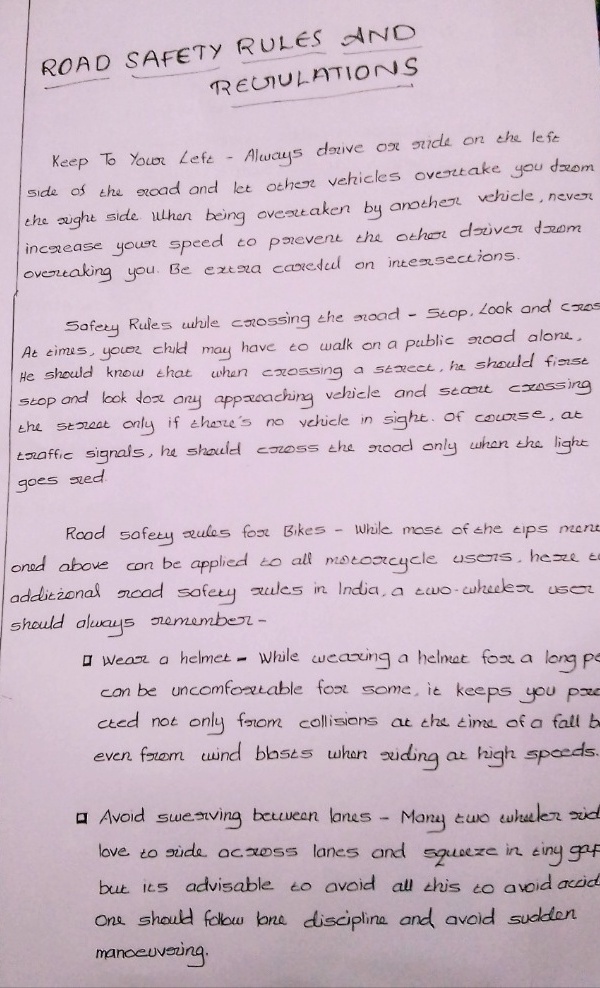 ROAD SAFETY RULES AND
REGULATIONS
Keep To Your Left - Always drive or ride on the left
side of the road and let other vehicles overtake you from
the right side. When being overtaken by another vehicle, never
increase your speed to prevent the other driver from
overtaking you. Be extra careful on intersections.
Safety Rules while crossing the road - Stop, Look and cros
At times, your child may have to walk on a public road alone,
He should know that when crossing a street, he should first
stop and look for any approaching vehicle and start crossing
the street only if there's no vehicle in sight. Of course, at
traffic signals, he should cross the road only when the light
goes red.
Road safety rules for Bikes - While most of the tips ment
oned above can be applied to all motorcycle users, here t
additional road safety rules in India, a two-wheeler user
should always remember -
Wear a helmet - While wearing a helmet for a long pe
can be uncomfortable for some, it keeps you pro
cted not only from collisions at the time of a fall b
even from wind blasts when riding at high speeds.
Avoid swerving between lanes - Many two wheeler rid
love to ride across lanes and squeeze in tiny gap
but its advisable to avoid all this to avoid accid
One should follow lane discipline and avoid sudden
manoeuvering.